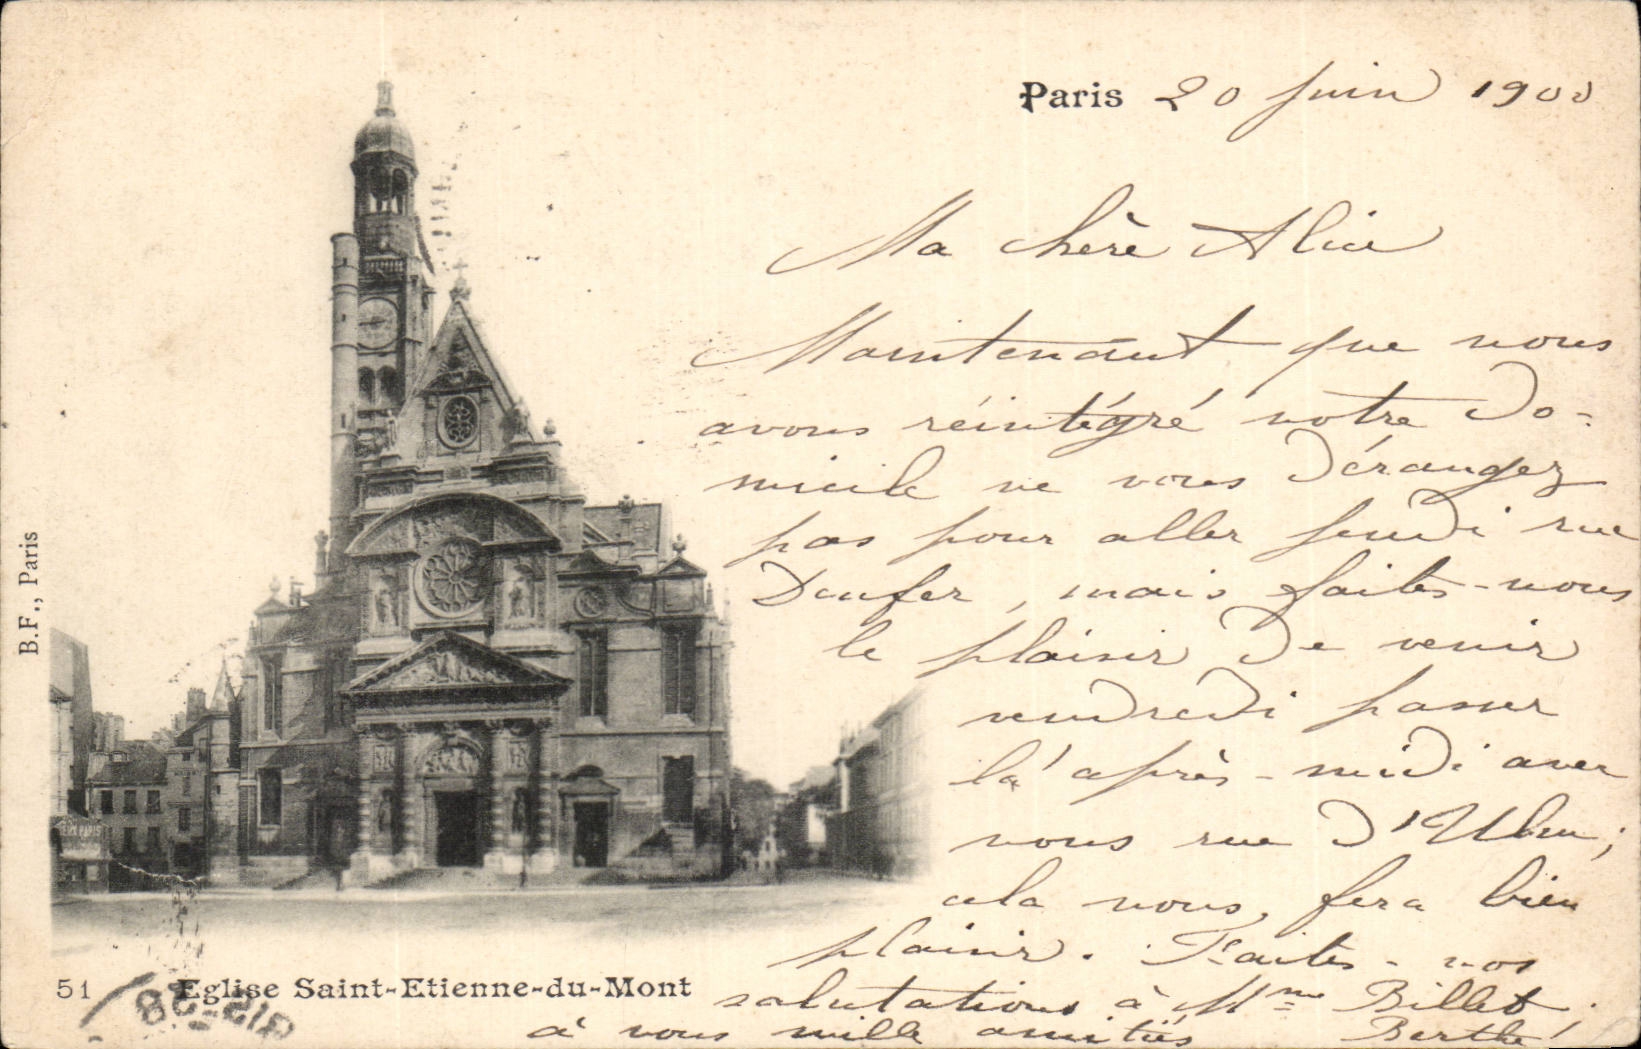 Paris 20 juin 1900
Ma chère Alice
Maintenant que nous
avons réintégré notre do-
micile ne vous dérangez
pas pour aller jeudi rue
Denfer, mais faites-nous
le plaisir de venir
vendredi passer
la après-midi avec
nous rue d'Ulm;
cela nous fera bien
plaisir. Faites-nos
salutations à Mme Billet.
à vous mille amitiés Berthe
B.F., Paris
51 Eglise Saint-Etienne-du-Mont